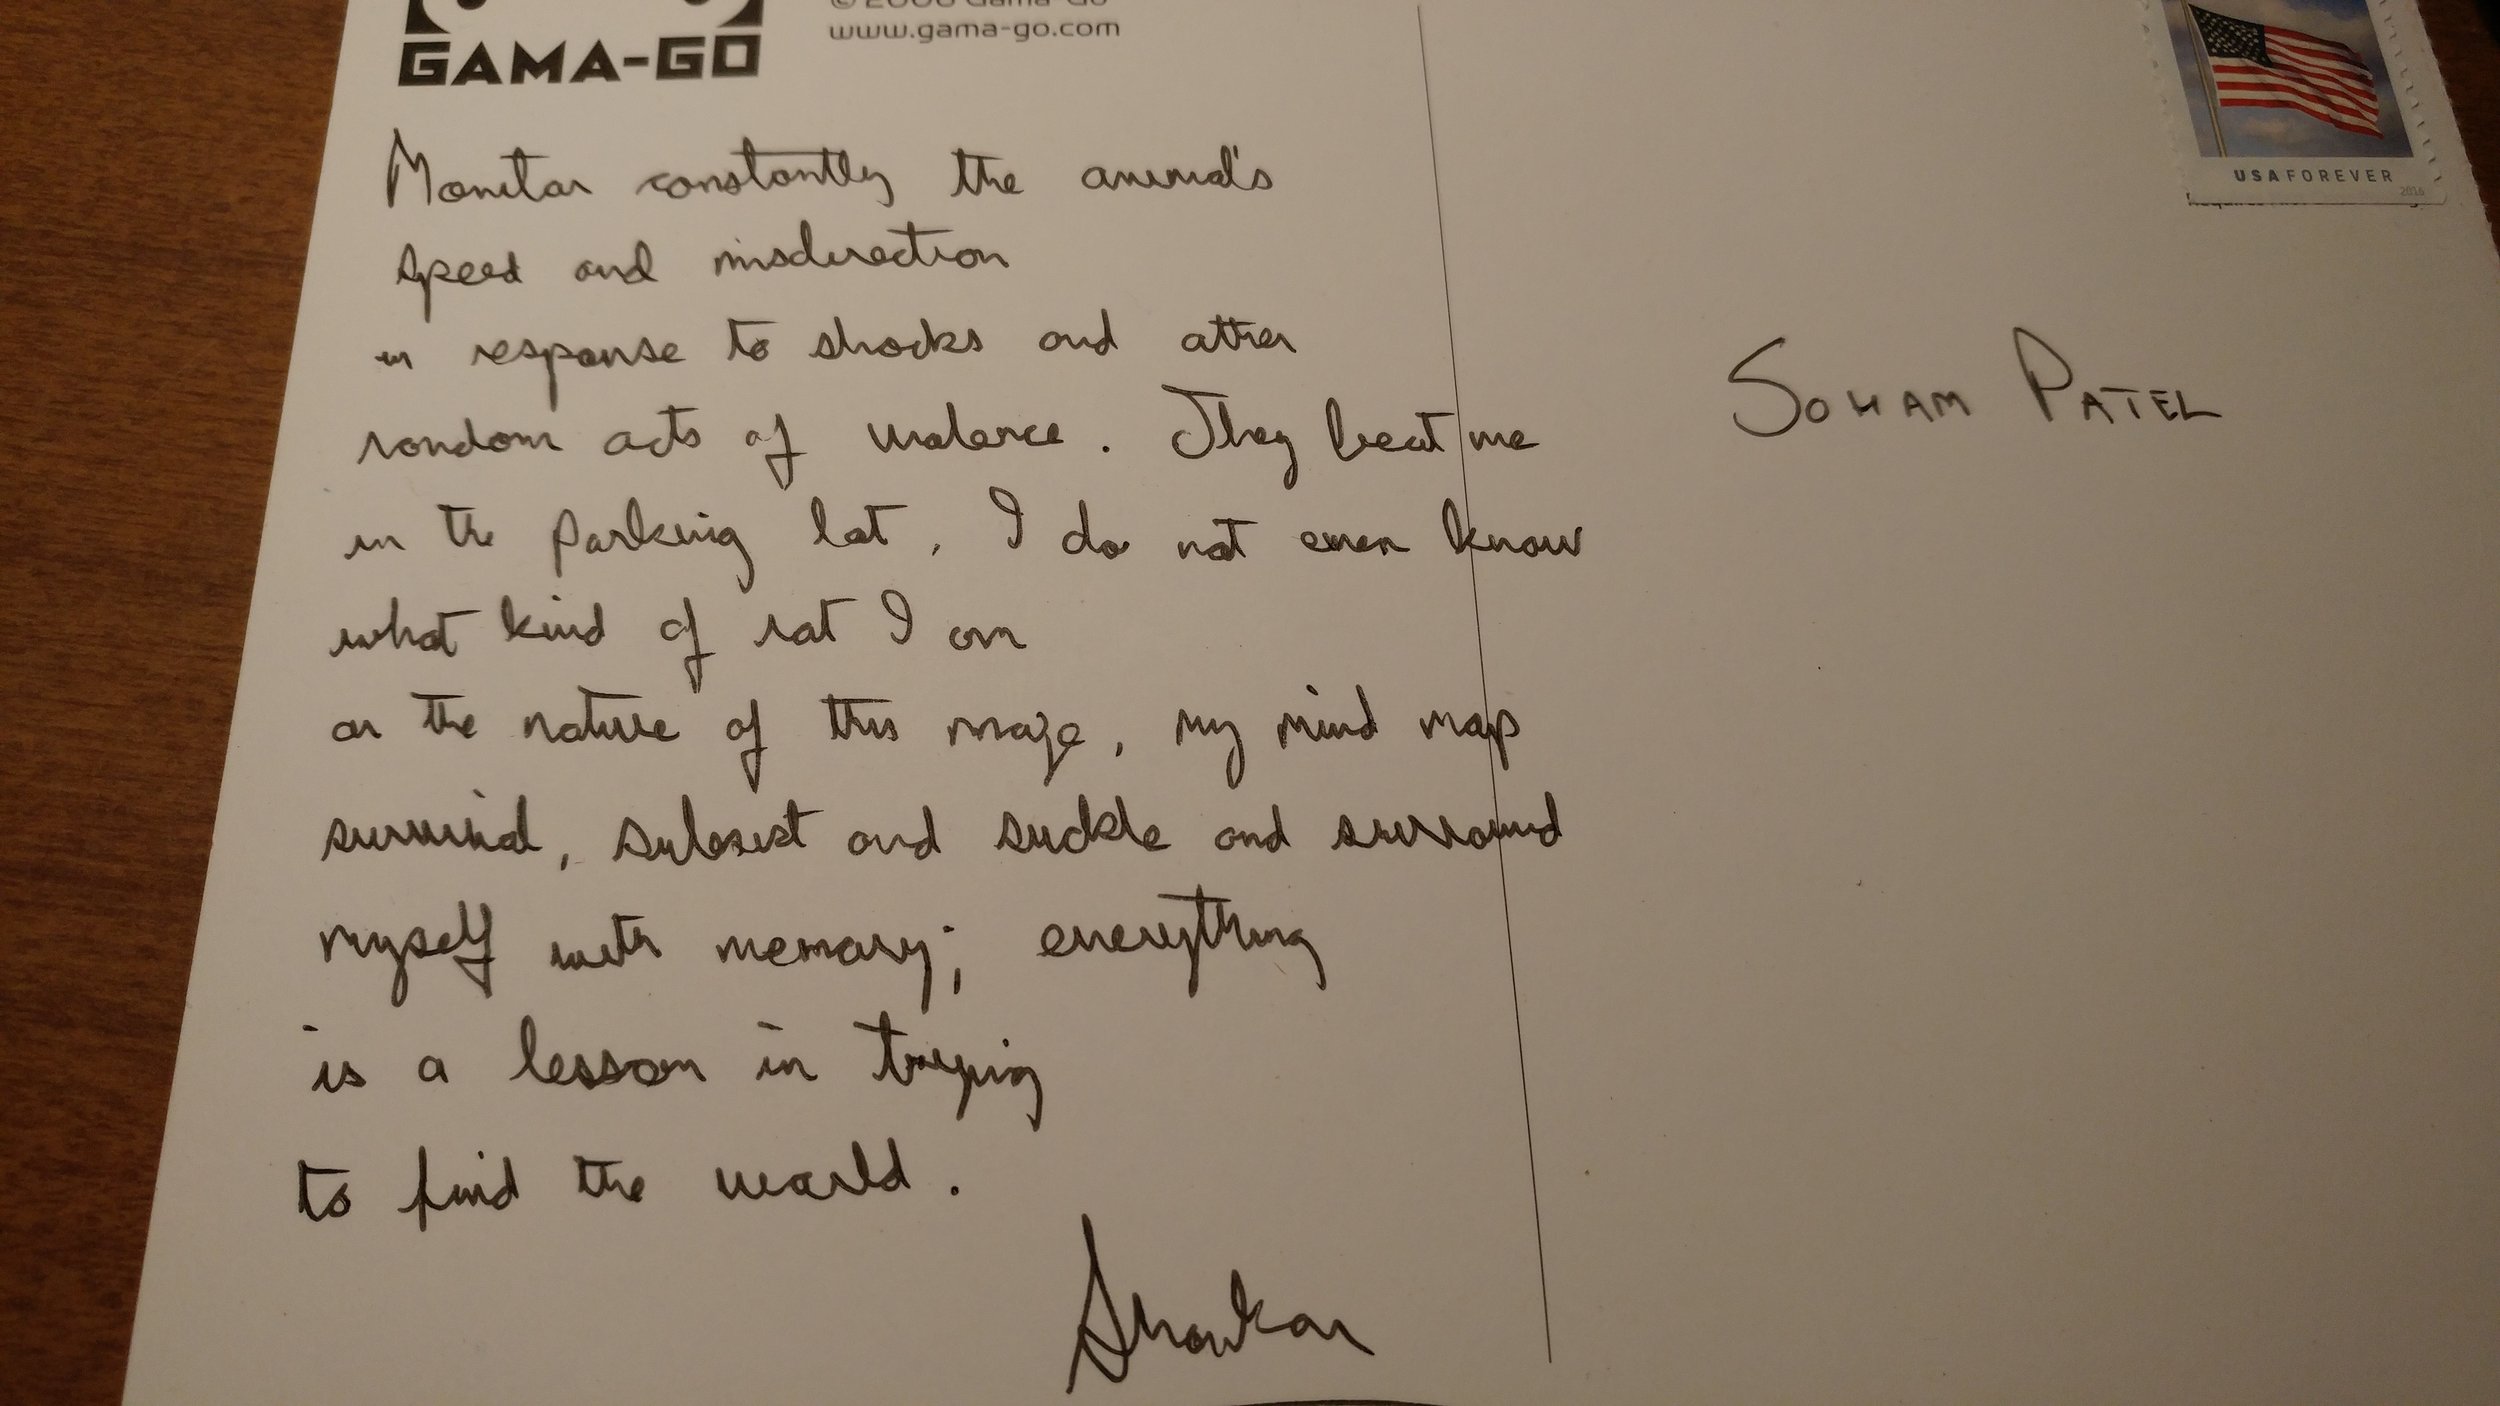 GAMA-GO
www.gama-go.com
USA FOREVER
2016
Monitor constantly the animal's
speed and misdirection
in response to shocks and other
random acts of violence. They beat me
in the parking lot, I do not even know
what kind of rat I am
or the nature of this maze, my mind map
survival, subsist and suckle and surround
myself with memory; everything
is a lesson in trying
to find the world.
Shankar
SOHAM PATEL